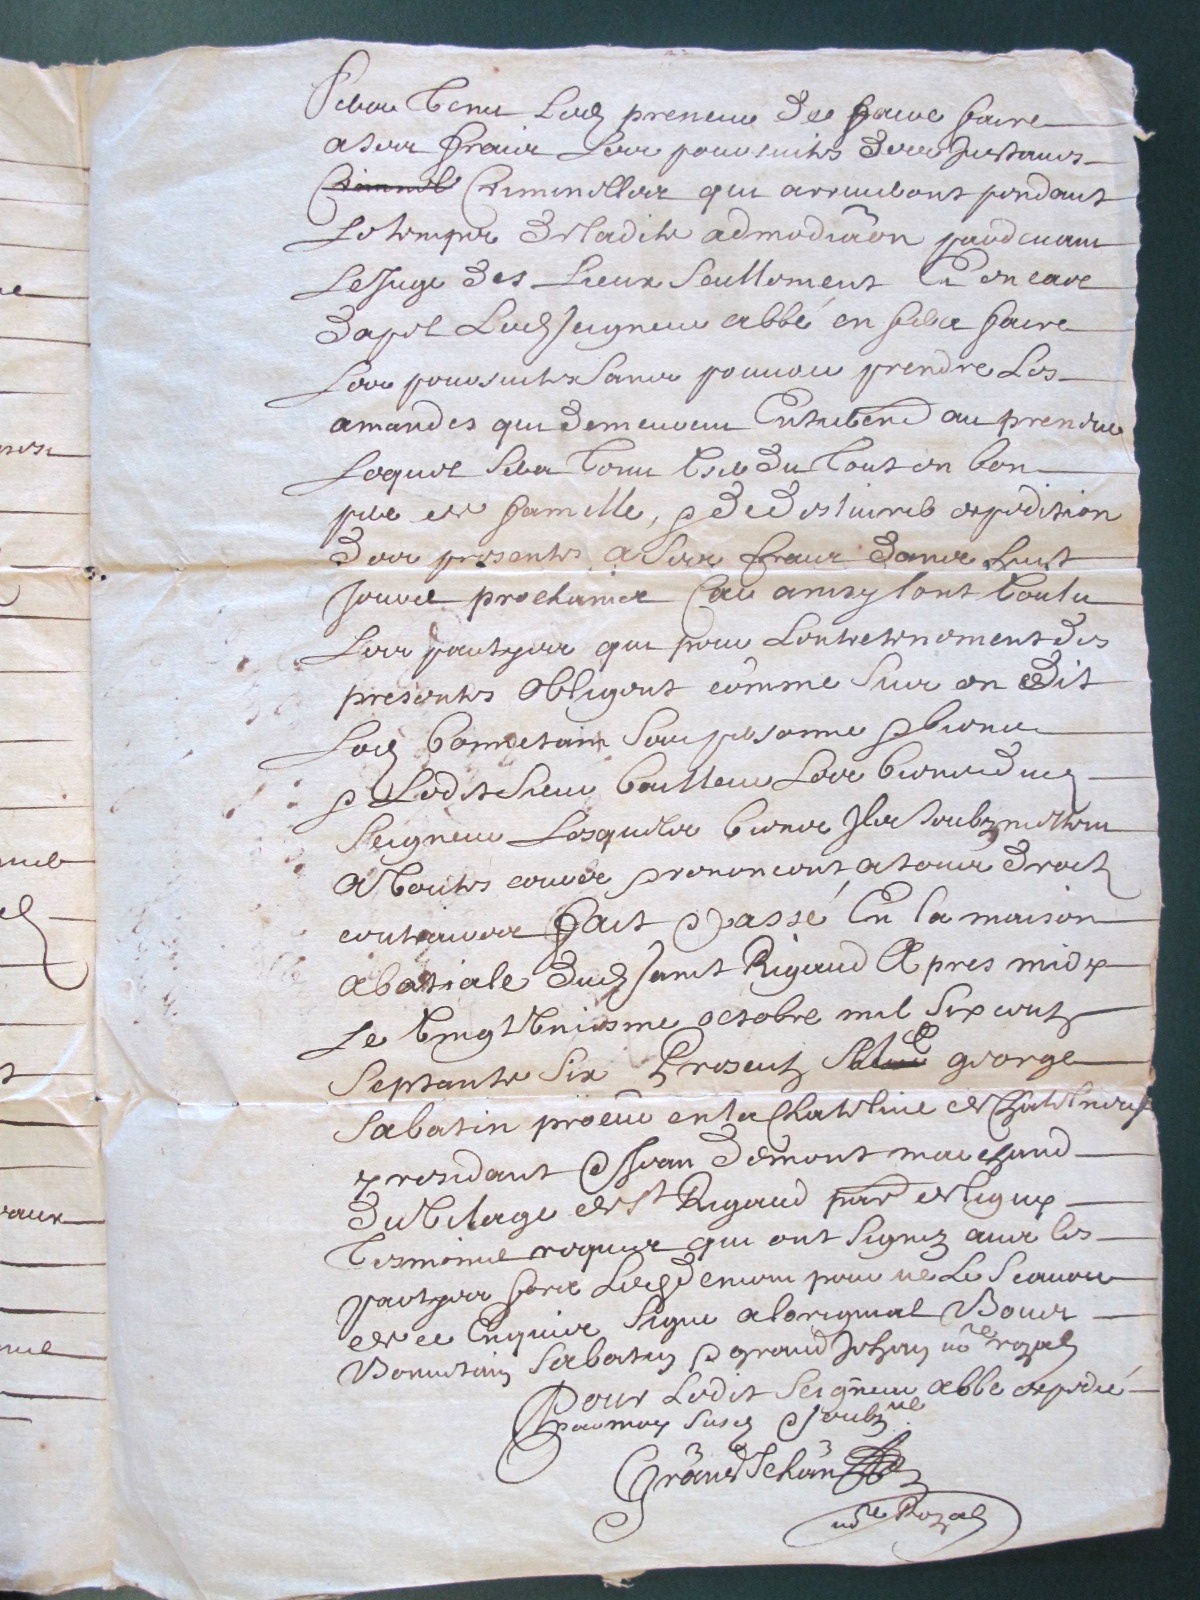 Sera tenu Ledq preneur de faire faire
a ses frais Les poursuites des Instances
Criminel Criminelles qui arriveront pendant
Le temps de ladite admodiãon pardevant
Le Juge des Lieux Seullement Et en cas
dapel Ledq Seigneur abbé en fera faire
Les poursuites Sans pouvoir prendre Les
amandes qui demeurent au preneur
Lequel Sera tenu User du tout en bon
pere de famille, & de deslivrer expedition
des presentes a Ses fraix dans huit
Jours prochains Car ainsy lont Voulu
Les partyes qui pour Lentretenement des
presentes obligent comme Sus en dit
Ledq Bonnetain Sa personne & biens
& Ledit Sieur bailleur Les biens dudq
Seigneur Lesquels biens Ils Soubzmettent
a toutes cours renoncent a tous droitz
contraires fait & passé En la maison
abatiale dudq Saint Rigaud Apres midy
Le Vingt Uniesme octobre mil Six centz
Septante Six Presentz George
Sabatin en la Chatelnie de Chateauneuf
y residant & Jean demont marchand
du Vilage de St Rigaud par de ligny
tesmoins requis qui ont Signez avec les
partyes fors Ledq demont pour ne Le Scavoir
de ce Enquis Signé a loriginal
Bonnetain Sabatin & grand Jehan nore royal
Pour Ledit Seigneur abbé expedié
par moy Susdq & Soubzné
Grand Jehan
nore Royal